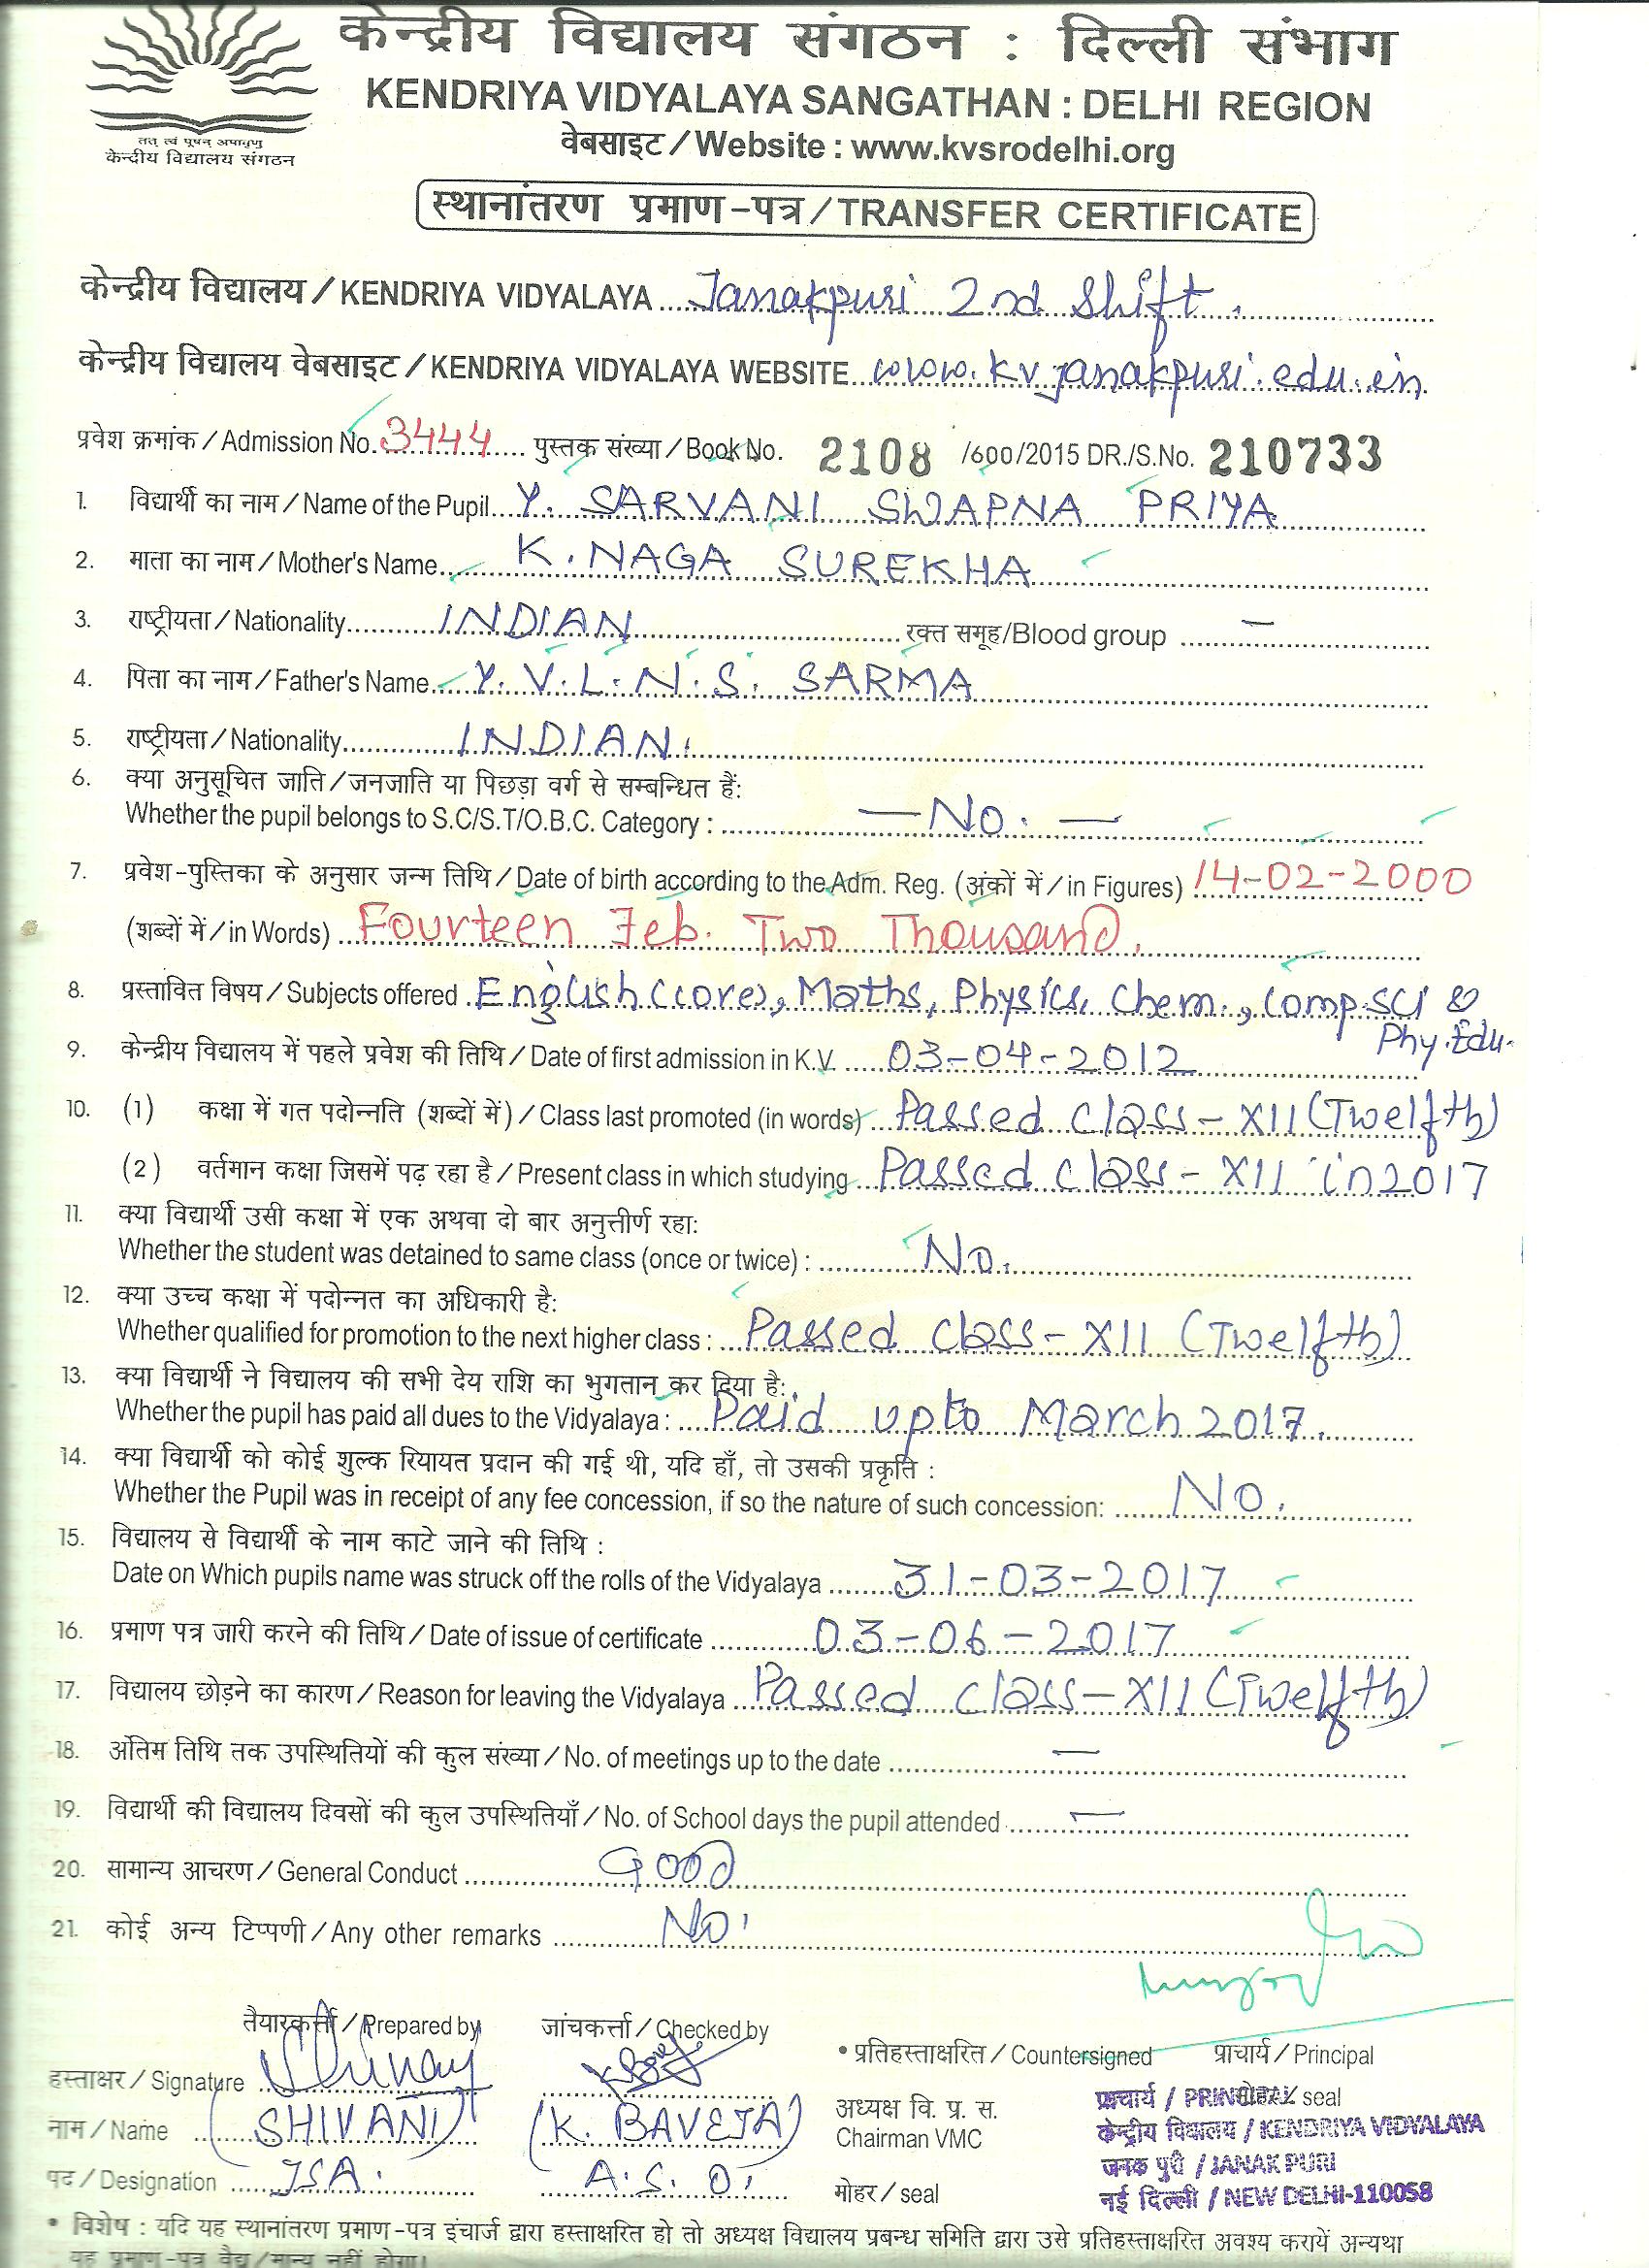 केन्द्रीय विद्यालय संगठन : दिल्ली संभाग
KENDRIYA VIDYALAYA SANGATHAN : DELHI REGION
तत् त्वं पूषन् अपावृणु
केन्द्रीय विद्यालय संगठन
वेबसाइट / Website : www.kvsrodelhi.org
स्थानांतरण प्रमाण-पत्र / TRANSFER CERTIFICATE
केन्द्रीय विद्यालय / KENDRIYA VIDYALAYA Janakpuri 2nd Shift.
केन्द्रीय विद्यालय वेबसाइट / KENDRIYA VIDYALAYA WEBSITE www.kvjanakpuri.edu.in
प्रवेश क्रमांक / Admission No. 3444 पुस्तक संख्या / Book No. 2108 /600/2015 DR./S.No. 210733
1. विद्यार्थी का नाम / Name of the Pupil Y. SARVANI SWAPNA PRIYA
2. माता का नाम / Mother's Name K. NAGA SUREKHA
3. राष्ट्रीयता / Nationality INDIAN रक्त समूह/Blood group —
4. पिता का नाम / Father's Name Y. V. L. N. S. SARMA
5. राष्ट्रीयता / Nationality INDIAN.
6. क्या अनुसूचित जाति / जनजाति या पिछड़ा वर्ग से सम्बन्धित हैं:
Whether the pupil belongs to S.C/S.T/O.B.C. Category : — No. —
7. प्रवेश-पुस्तिका के अनुसार जन्म तिथि / Date of birth according to the Adm. Reg. (अंकों में / in Figures) 14-02-2000
(शब्दों में / in Words) Fourteen Feb. Two Thousand.
8. प्रस्तावित विषय / Subjects offered English (core), Maths, Physics, Chem., Comp.SCI &
Phy.Edu.
9. केन्द्रीय विद्यालय में पहले प्रवेश की तिथि / Date of first admission in K.V. 03-04-2012
10. (1) कक्षा में गत पदोन्नति (शब्दों में) / Class last promoted (in words) Passed class-XII (Twelfth)
(2) वर्तमान कक्षा जिसमें पढ़ रहा है / Present class in which studying Passed class-XII in 2017
11. क्या विद्यार्थी उसी कक्षा में एक अथवा दो बार अनुत्तीर्ण रहा:
Whether the student was detained to same class (once or twice) : No.
12. क्या उच्च कक्षा में पदोन्नत का अधिकारी है:
Whether qualified for promotion to the next higher class : Passed class-XII (Twelfth)
13. क्या विद्यार्थी ने विद्यालय की सभी देय राशि का भुगतान कर दिया है:
Whether the pupil has paid all dues to the Vidyalaya : Paid upto March 2017.
14. क्या विद्यार्थी को कोई शुल्क रियायत प्रदान की गई थी, यदि हाँ, तो उसकी प्रकृति :
Whether the Pupil was in receipt of any fee concession, if so the nature of such concession: No.
15. विद्यालय से विद्यार्थी के नाम काटे जाने की तिथि :
Date on Which pupils name was struck off the rolls of the Vidyalaya 31-03-2017
16. प्रमाण पत्र जारी करने की तिथि / Date of issue of certificate 03-06-2017
17. विद्यालय छोड़ने का कारण / Reason for leaving the Vidyalaya Passed class-XII (Twelfth)
18. अंतिम तिथि तक उपस्थितियों की कुल संख्या / No. of meetings up to the date —
19. विद्यार्थी की विद्यालय दिवसों की कुल उपस्थितियाँ / No. of School days the pupil attended —
20. सामान्य आचरण / General Conduct Good
21. कोई अन्य टिप्पणी / Any other remarks No.
तैयारकर्त्ता / Prepared by जांचकर्त्ता / Checked by
• प्रतिहस्ताक्षरित / Countersigned प्राचार्य / Principal
हस्ताक्षर / Signature Shivani
नाम / Name (SHIVANI) (K. BAVEJA)
पद / Designation JSA. A.S.O.
अध्यक्ष वि. प्र. स.
Chairman VMC
मोहर / seal
प्राचार्य / PRINCIPAL seal
केन्द्रीय विद्यालय / KENDRIYA VIDYALAYA
जनक पुरी / JANAK PURI
नई दिल्ली / NEW DELHI-110058
• विशेष : यदि यह स्थानांतरण प्रमाण-पत्र इंचार्ज द्वारा हस्ताक्षरित हो तो अध्यक्ष विद्यालय प्रबन्ध समिति द्वारा उसे प्रतिहस्ताक्षरित अवश्य करायें अन्यथा
यह प्रमाण-पत्र वैद्य / मान्य नहीं होगा।